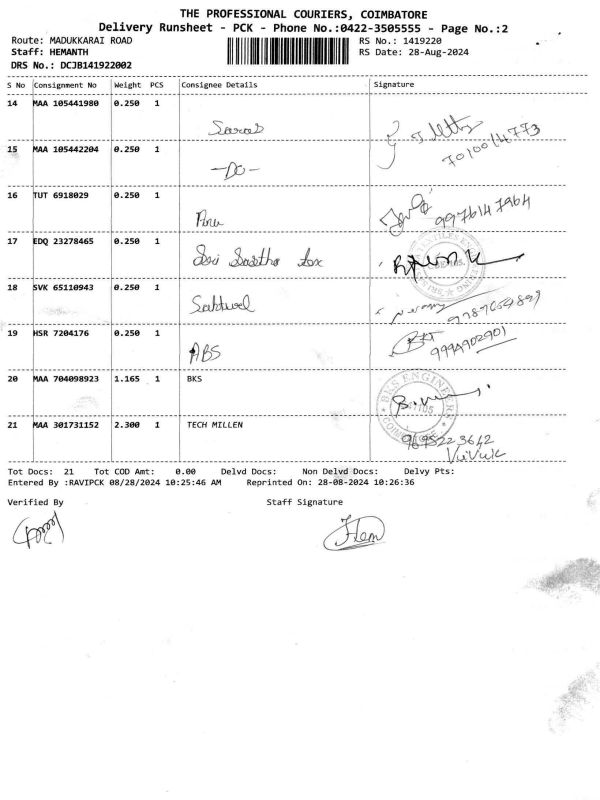 THE PROFESSIONAL COURIERS, COIMBATORE
Delivery Runsheet - PCK - Phone No.:0422-3505555 - Page No.:2
Route: MADUKKARAI ROAD RS No.: 1419220
Staff: HEMANTH RS Date: 28-Aug-2024
DRS No.: DCJB141922002
S No Consignment No Weight PCS Consignee Details Signature
14 MAA 105441980 0.250 1
7010014773
15 MAA 105442204 0.250 1
-Do-
16 TUT 6918029 0.250 1
9976147964
17 EDQ 23278465 0.250 1
Sri Sastha
18 SVK 65110943 0.250 1
Sakthivel
19 HSR 7204176 0.250 1
ABS
9994902901
20 MAA 704098923 1.165 1 BKS
BKS ENGINEERS
21 MAA 301731152 2.300 1 TECH MILLEN
Vivek
Tot Docs: 21 Tot COD Amt: 0.00 Delvd Docs: Non Delvd Docs: Delvy Pts:
Entered By :RAVIPCK 08/28/2024 10:25:46 AM Reprinted On: 28-08-2024 10:26:36
Verified By Staff Signature
Hem